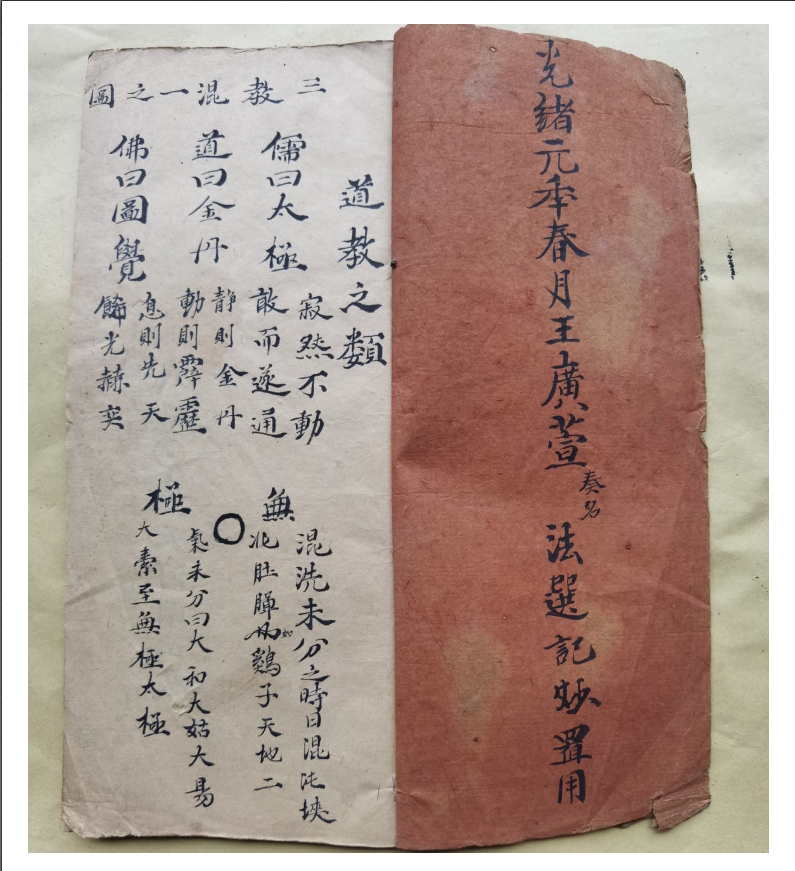 光緒元年春月王廣萱奏名法選記妙置用
道教之類
三教混一之圖
儒曰太極
寂然不動
敢而遂通
道曰金丹
静則金丹
動則霹靂
佛曰圖覺
息則先天
餙光赫奕
無〇極
混洗未分之時曰混沌挾
兆胚腪如鷄子天地二
氣未分曰大和大姑大易
大素至無極太極